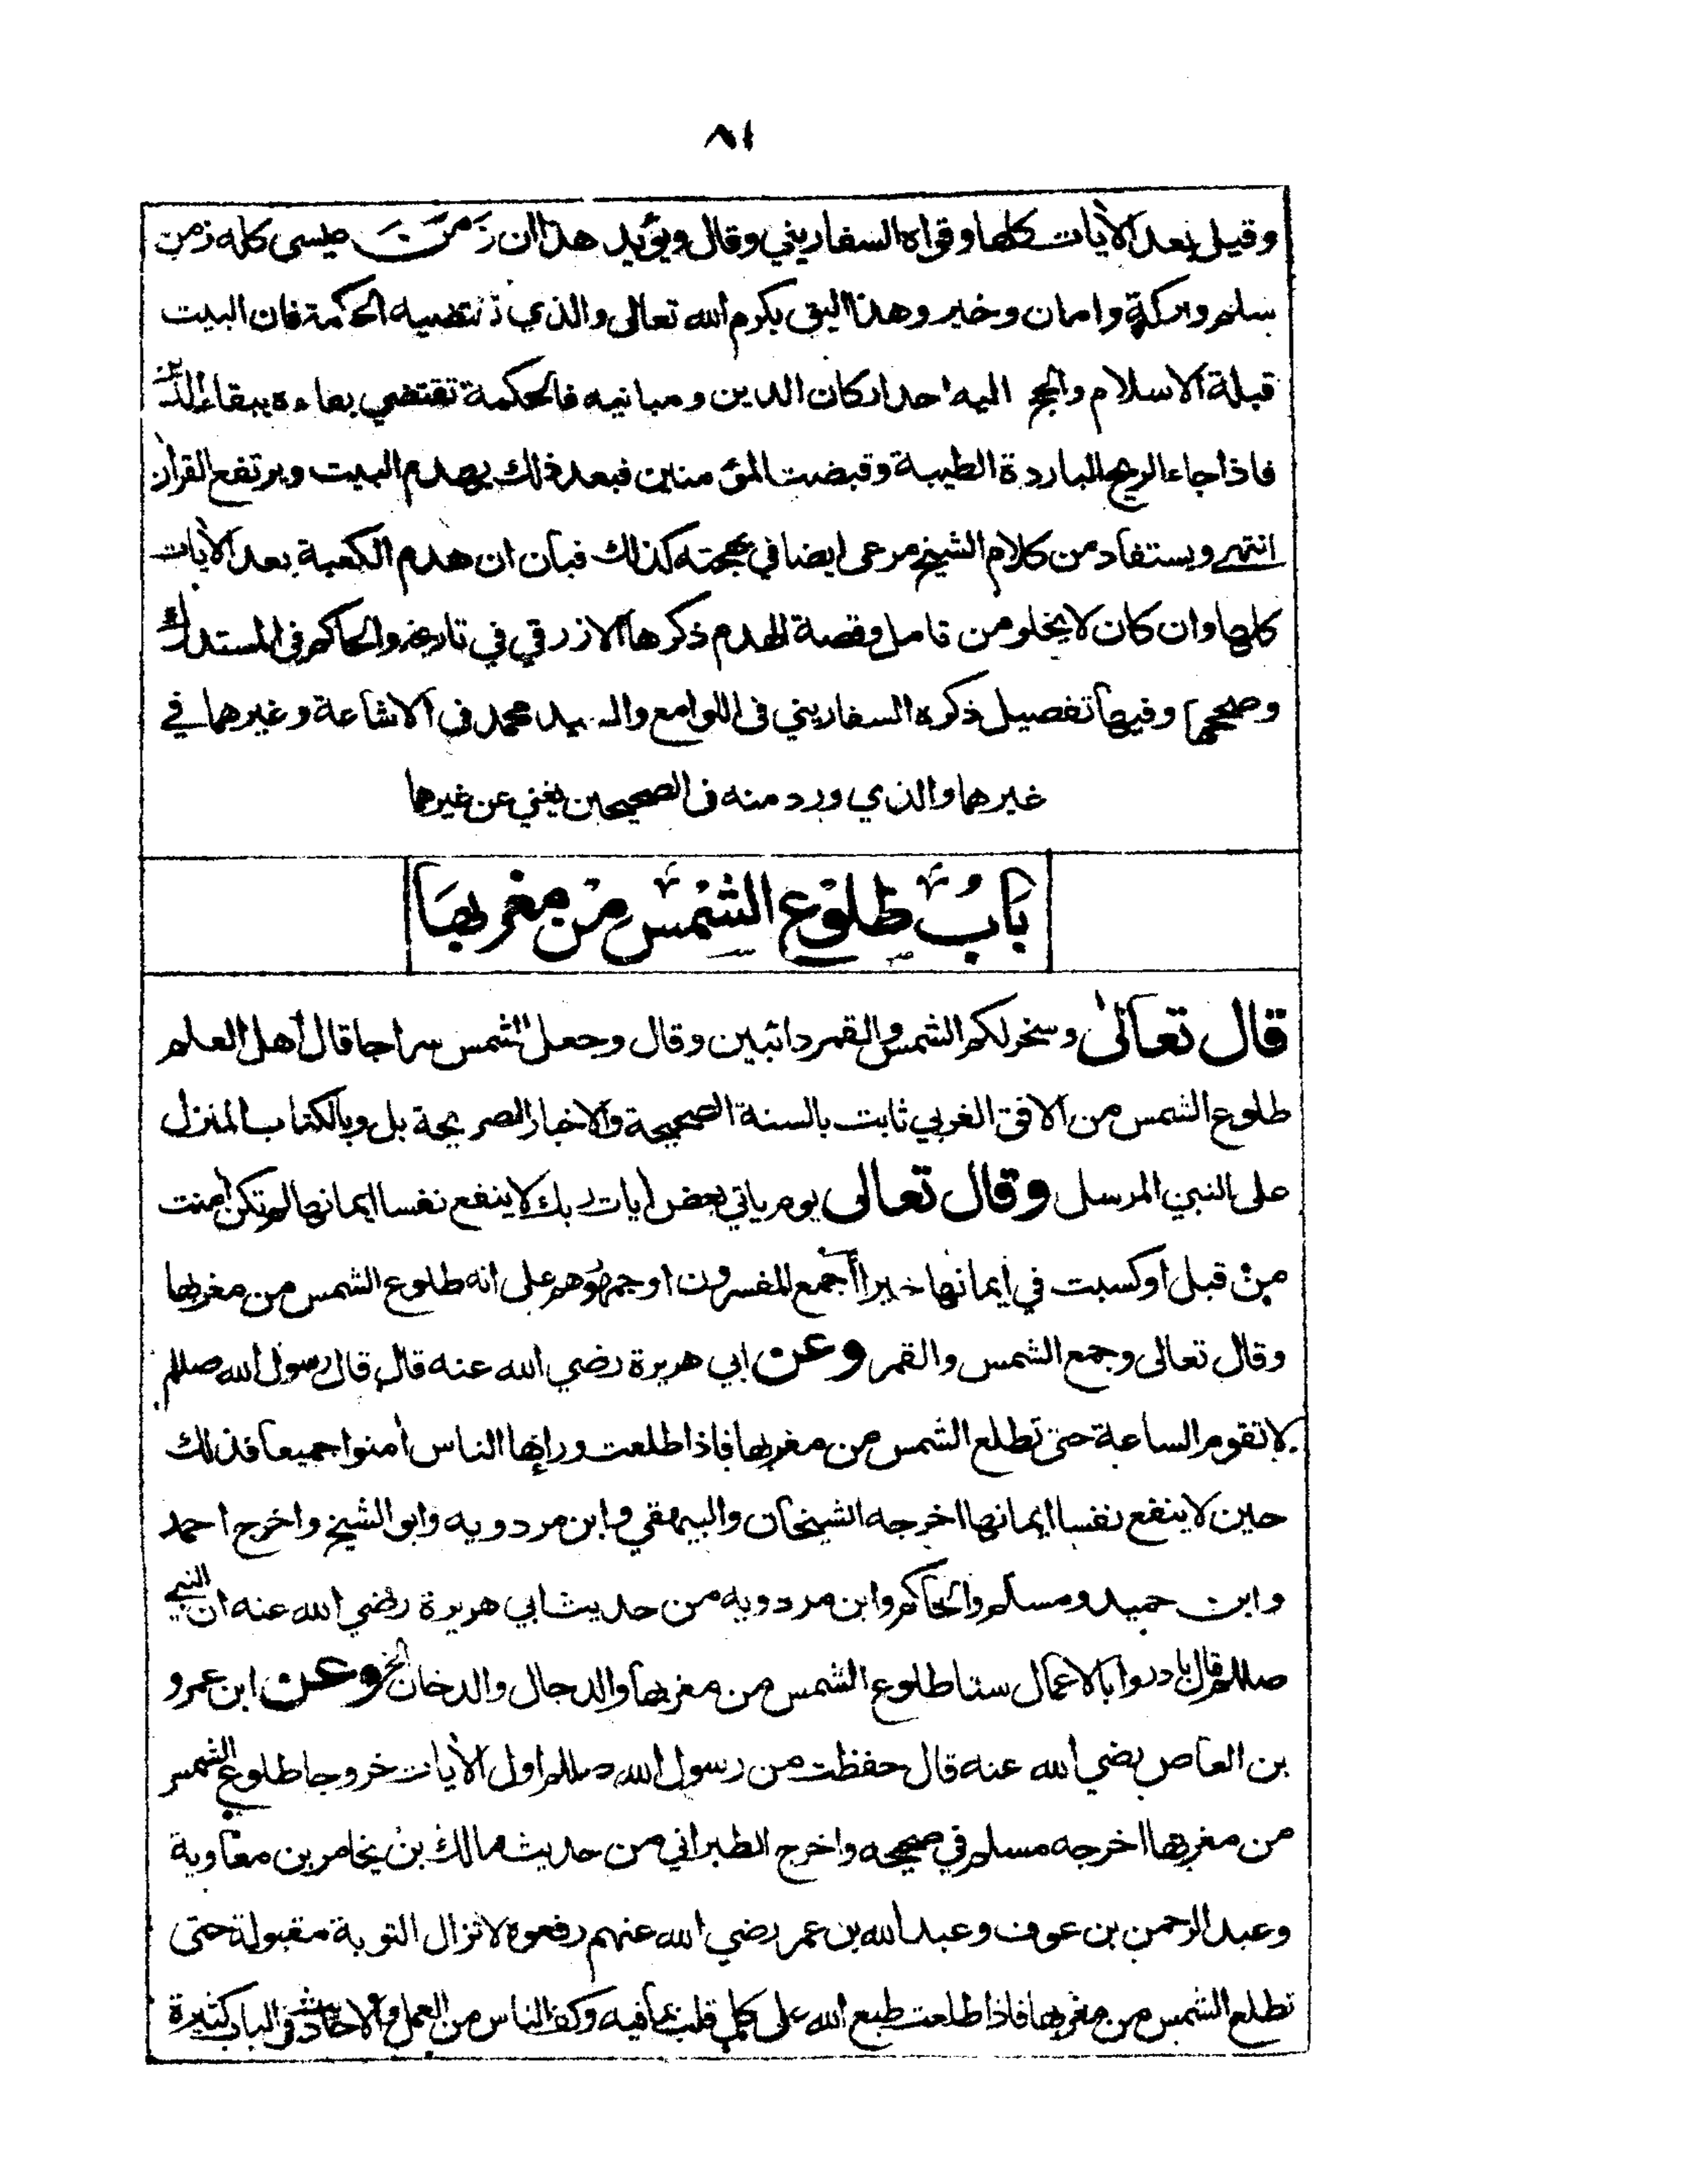 ٨٤
وقيل بعد الأيات كلها وقواه السفاريني وقال ويؤيد هذا ان زمن عيسى كله زمن
سلم وبركة وامان وخير وهذا اليق بكرم الله تعالى والذي تقتضيه الحكمة فان البيت
قبلة الاسلام والحج اليه احد اركان الدين ومبانيه فالحكمة تقتضي بقاءه ببقاء الدين
فاذا جاء الريح الباردة الطيبة وقبضت المؤمنين فبعد ذلك يهدم البيت ويرتفع القرآن
انتهى ويستفاد من كلام الشيخ مرعى ايضا في بهجته كذلك فبان ان هدم الكعبة بعد الأيات
كلها وان كان لا يخلو من تامل وقصة الهدم ذكرها الازرقي في تاريخه والحاكم في المستدرك
وصححها وفيها تفصيل ذكره السفاريني فى اللوامع والسيد محمد فى الاشاعة وغيرهما في
غيرهما والذي ورد منه فى الصحيحين يغني عن غيرهما
باب طلوع الشمس من مغربها
قال تعالى وسخر لكم الشمس والقمر دائبين وقال وجعل الشمس سراجا قال أهل العلم
طلوع الشمس من الافق الغربي ثابت بالسنة الصحيحة والاخبار الصريحة بل وبالكتاب المنزل
على النبي المرسل وقال تعالى يوم ياتي بعض أيات ربك لا ينفع نفسا ايمانها لم تكن أمنت
من قبل او كسبت في ايمانها خيرا أجمع المفسرون او جمهورهم على انه طلوع الشمس من مغربها
وقال تعالى وجمع الشمس والقمر وعن ابي هريرة رضي الله عنه قال قال رسول الله صللم
لا تقوم الساعة حتى تطلع الشمس من مغربها فاذا طلعت ورأها الناس أمنوا جميعا فذلك
حين لا ينفع نفسا ايمانها اخرجه الشيخان والبيهقي وابن مردويه وابو الشيخ واخرج احمد
وابن حميد ومسلم والحاكم وابن مردويه من حديث ابي هريرة رضي الله عنه ان النبي
صللم قال بادروا بالاعمال ستا طلوع الشمس من مغربها والدجال والدخان الخ وعن ابن عمرو
بن العاص رضي الله عنه قال حفظت من رسول الله صللم اول الأيات خروجا طلوع الشمس
من مغربها اخرجه مسلم في صحيحه واخرج الطبراني من حديث مالك بن يخامر بن معاوية
وعبد الرحمن بن عوف وعبد الله بن عمر رضي الله عنهم رفعوه لا تزال التوبة مقبولة حتى
تطلع الشمس من مغربها فاذا طلعت طبع الله على كل قلب بما فيه وكف الناس من العمل والاحاديث في الباب كثيرة